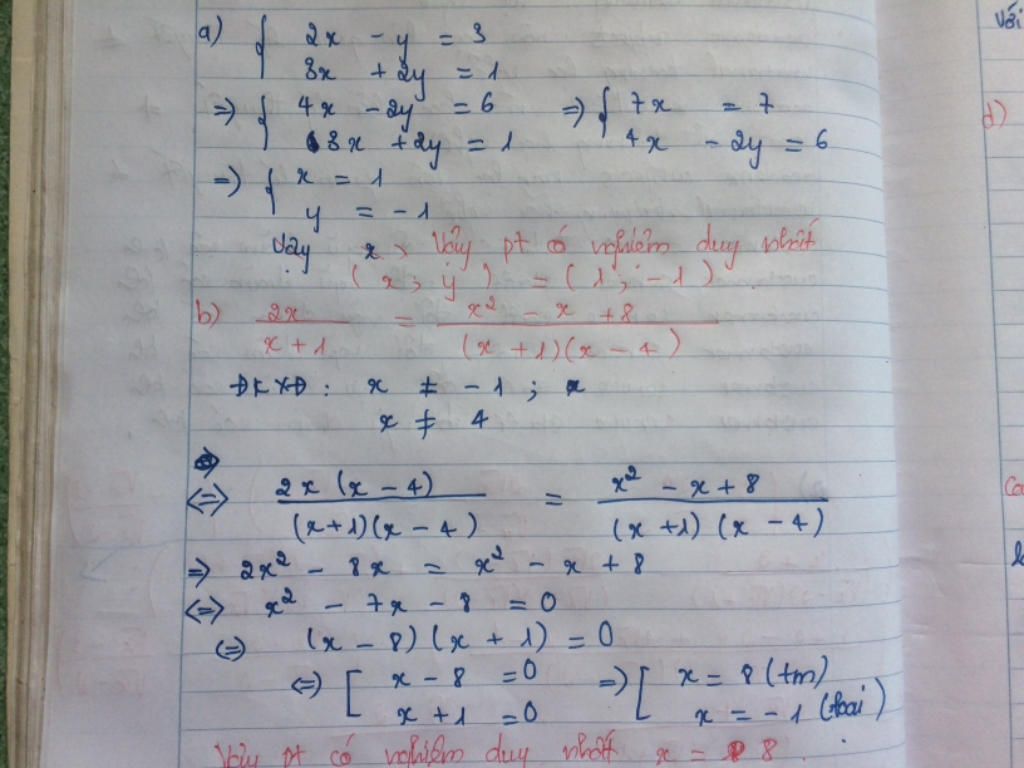 a) { 2x - y = 3
3x + 2y = 1
=> { 4x - 2y = 6 => { 7x = 7
3x + 2y = 1 4x - 2y = 6
=> { x = 1
y = -1
Vậy x Vậy pt có nghiệm duy nhất
(x; y) = (1; -1)
b) 2x/(x + 1) = (x² - x + 8)/((x + 1)(x - 4))
ĐKXĐ: x ≠ -1; x
x ≠ 4
<=> 2x(x - 4)/((x+1)(x - 4)) = (x² - x + 8)/((x + 1)(x - 4))
=> 2x² - 8x = x² - x + 8
<=> x² - 7x - 8 = 0
<=> (x - 8)(x + 1) = 0
<=> [ x - 8 = 0 => [ x = 8 (tm)
x + 1 = 0 x = -1 (loại)
Vậy pt có nghiệm duy nhất x = 8.
với
d)